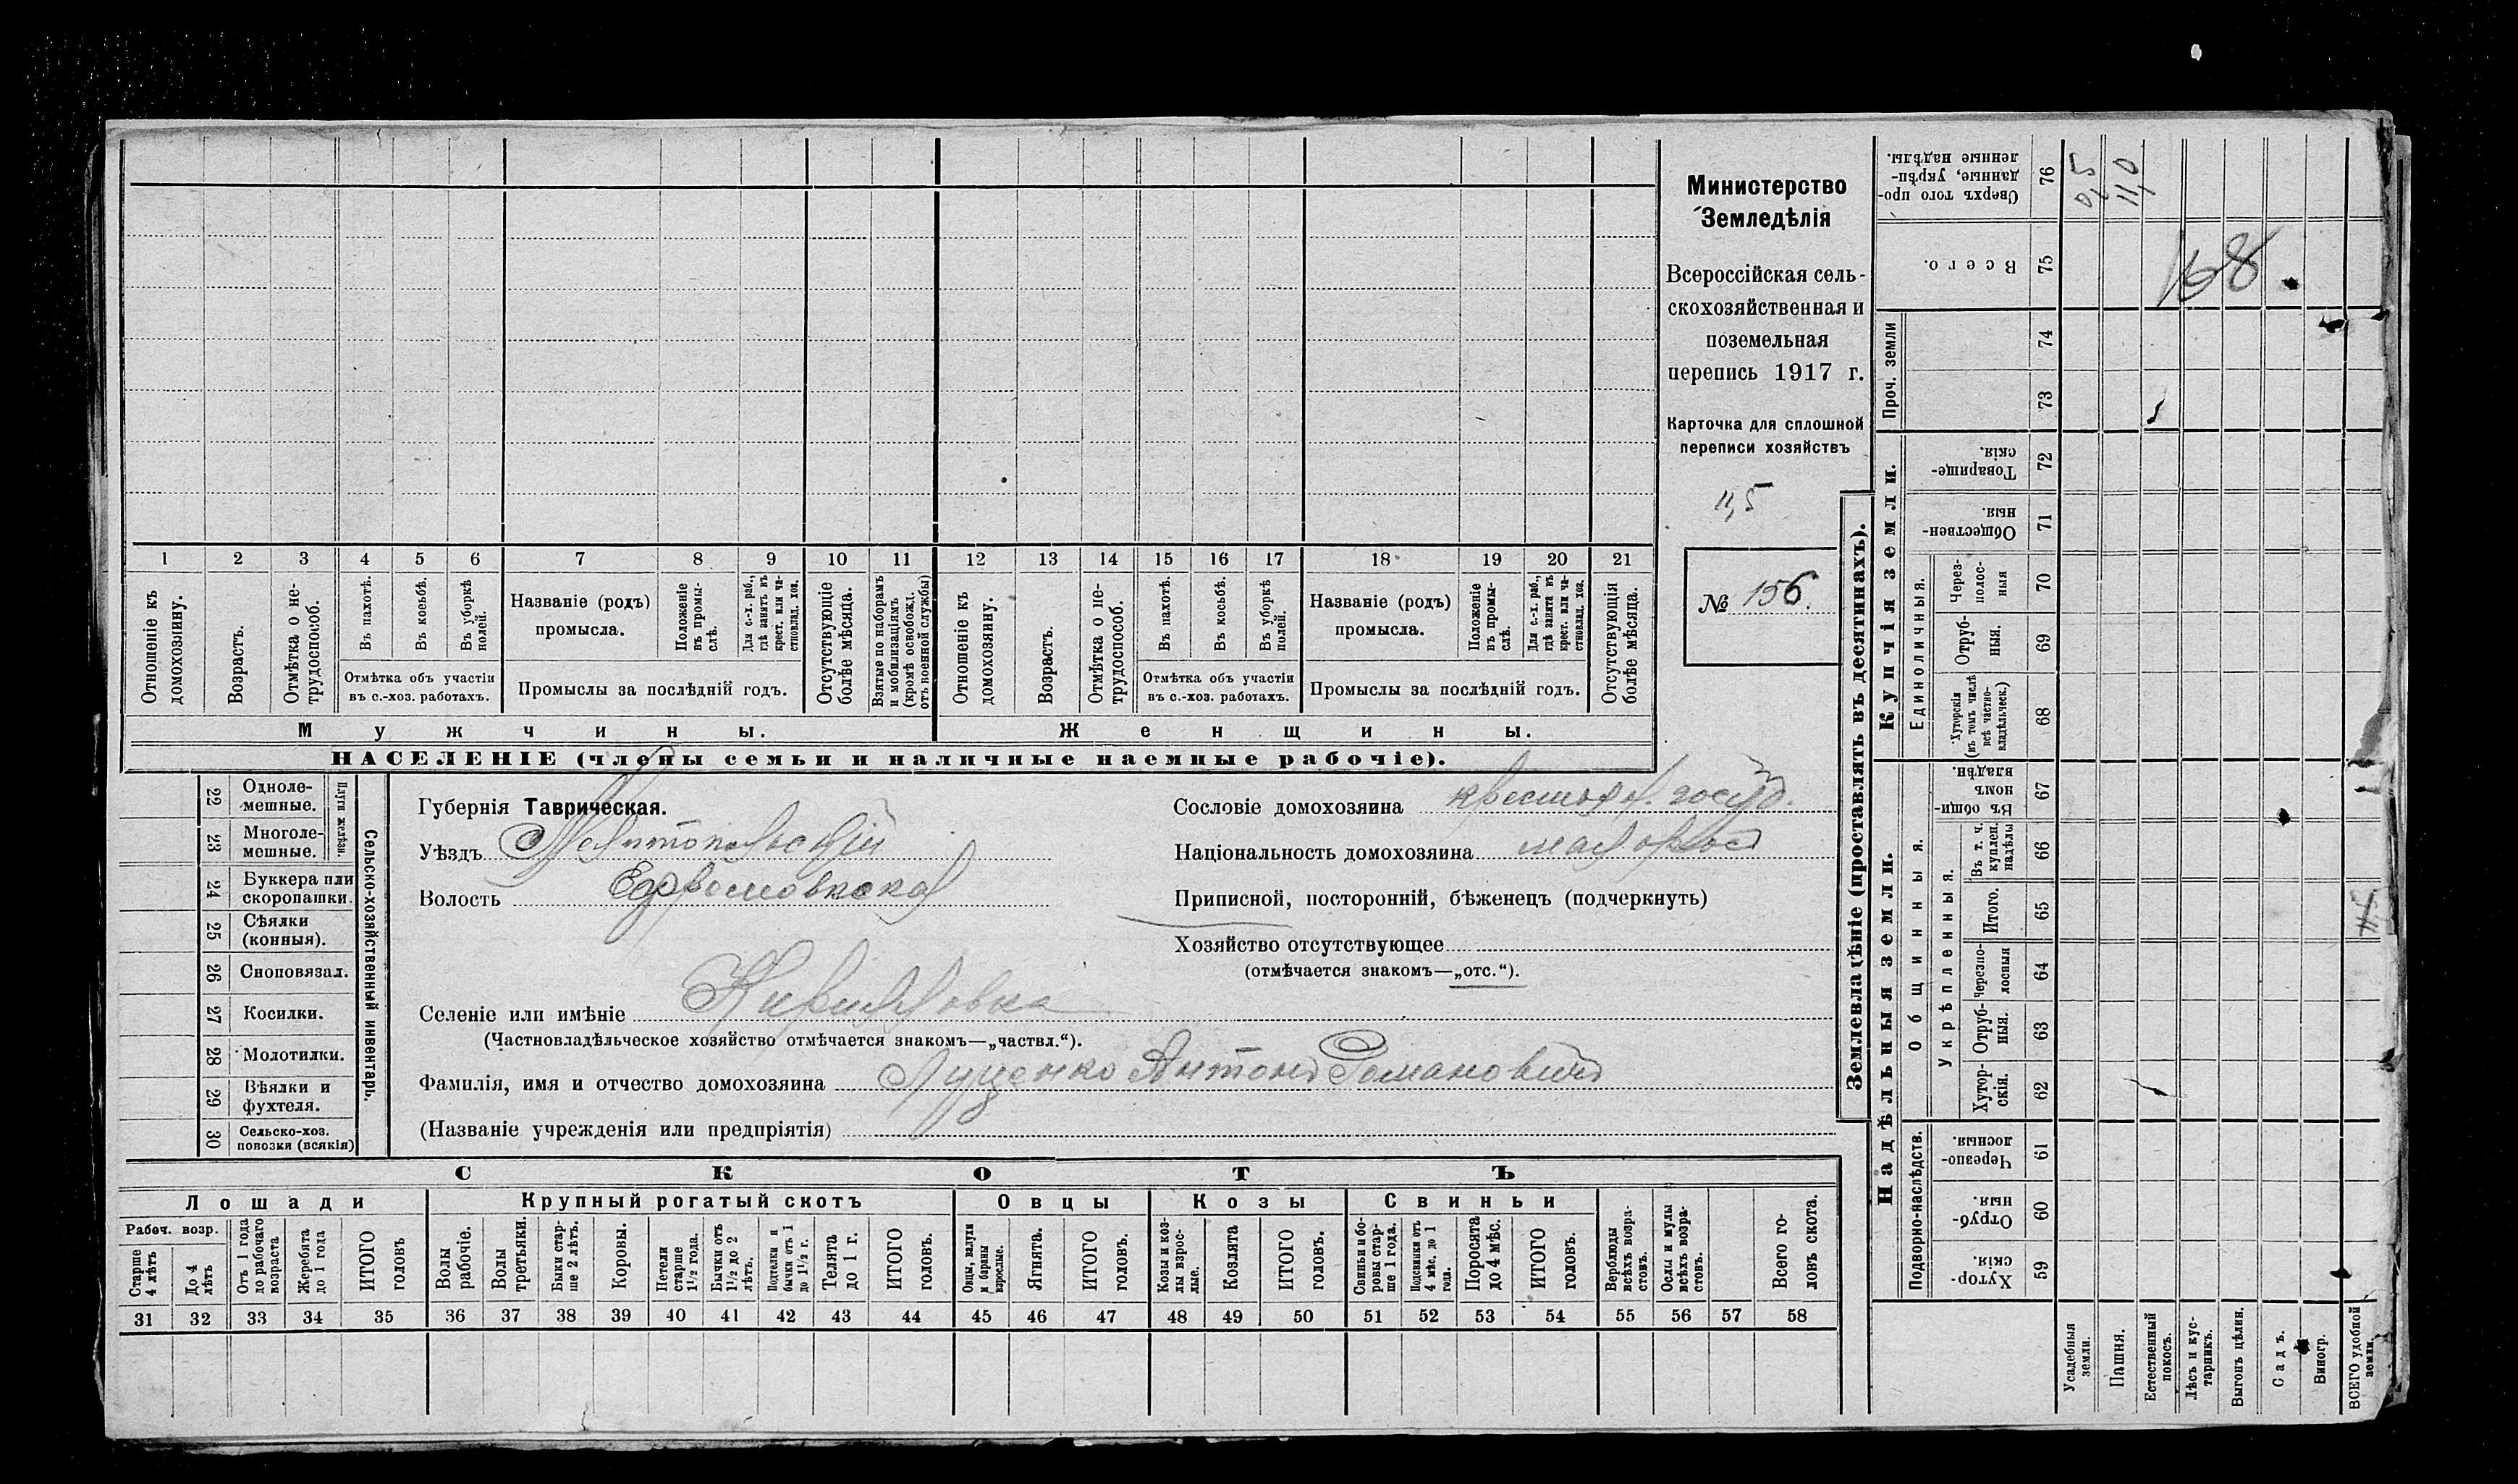 Министерство
Земледѣлія
Всероссійская сель-
скохозяйственная и
поземельная
перепись 1917 г.
Карточка для сплошной
переписи хозяйствъ
11,5
№ 156.
1 2 3 4 5 6 7 8 9 10 11 12 13 14 15 16 17 18 19 20 21
Отношеніе къ домохозяину.
Возрастъ.
Отмѣтка о не-трудоспособ.
Въ пахотѣ.
Въ косьбѣ.
Въ уборкѣ полей.
Отмѣтка объ участіи
въ с.-хоз. работахъ.
Названіе (родъ)
промысла.
Положеніе въ промы-слѣ.
Для с.-х. раб., гдѣ занятъ въ крест. или ча-стновлад. хоз.
Промыслы за послѣдній годъ.
Отсутствующіе болѣе мѣсяца.
Взятые по наборамъ и мобилизаціямъ (кромѣ освобожд. отъ военной службы)
Отношеніе къ домохозяину.
Возрастъ.
Отмѣтка о не-трудоспособ.
Въ пахотѣ.
Въ косьбѣ.
Въ уборкѣ полей.
Отмѣтка объ участіи
въ с.-хоз. работахъ.
Названіе (родъ)
промысла.
Положеніе въ промы-слѣ.
Для с.-х. раб., гдѣ занята въ крест. или ча-стновлад. хоз.
Промыслы за послѣдній годъ.
Отсутствующія болѣе мѣсяца.
Мужчины.
Женщины.
НАСЕЛЕНІЕ (члены семьи и наличные наемные рабочіе).
22 Одноле-мешные.
23 Многоле-мешные.
Плуги желѣзн.
24 Буккера или скоропашки.
25 Сѣялки (конныя).
26 Сноповязал.
27 Косилки.
28 Молотилки.
29 Вѣялки и фухтеля.
30 Сельско-хоз. повозки (всякія)
Сельско-хозяйственный инвентарь.
Губернія Таврическая.
Уѣздъ Мелитопольскій
Волость
Селеніе или имѣніе Кирилловка
(Частновладѣльческое хозяйство отмѣчается знакомъ—„частвл.“).
Фамилія, имя и отчество домохозяина Луценко Антонъ Романовичъ
(Названіе учрежденія или предпріятія)
Сословіе домохозяина
Національность домохозяина малороссъ
Приписной, посторонній, бѣженецъ (подчеркнуть)
Хозяйство отсутствующее
(отмѣчается знакомъ—„отс.“).
СКОТЪ
Лошади
Крупный рогатый скотъ
Овцы
Козы
Свиньи
Рабоч. возр.
Старше 4 лѣтъ
До 4 лѣтъ
Отъ 1 года до рабочаго возраста
Жеребята до 1 года
ИТОГО головъ
Волы рабочіе.
Волы третьяки.
Быки стар-ше 2 лѣтъ.
Коровы.
Нетели старше 1½ года.
Бычки отъ 1½ до 2 лѣтъ.
Подтелки и бычки отъ 1 до 1½ г.
Телята до 1 г.
ИТОГО головъ.
Овцы, валухи и бараны взрослые.
Ягнята.
ИТОГО головъ.
Козы и коз-лы взрос-лые.
Козлята
ИТОГО головъ.
Свиньи и бо-ровы стар-ше 1 года.
Подсвинки отъ 4 мѣс. до 1 года.
Поросята до 4 мѣс.
ИТОГО головъ.
Верблюды всѣхъ возра-стовъ.
Ослы и мулы всѣхъ возра-стовъ.
Всего го-ловъ скота.
31 32 33 34 35 36 37 38 39 40 41 42 43 44 45 46 47 48 49 50 51 52 53 54 55 56 57 58
Землевладѣніе (проставлять въ десятинахъ).
Надѣльныя земли.
Купчія земли.
Проч. земли
Подворно-наслѣдств.
Общинныя.
Укрѣпленныя.
Единоличныя.
59 Хутор-скія.
60 Отруб-ныя.
61 Черезпо-лосныя.
62 Хутор-скія.
63 Отруб-ныя.
64 Черезпо-лосныя
65 Итого.
66 Въ т. ч. куплен. надѣлы
67 Въ общин-номъ владѣн.
68 Хуторскія (въ томъ числѣ всѣ частно-владѣльческ.)
69 Отруб-ныя.
70 Через-полос-ныя
71 Обществен-ныя.
72 Товарище-скія.
73
74
75 Всего.
76 Сверхъ того про-данные, укрѣп-ленные надѣлы.
0,5
11,0
168.
Усадебныя земли.
Пашня.
Естественный покосъ.
Лѣсъ и кус-тарникъ.
Выгонъ цѣлин.
Садъ.
Виногр.
ВСЕГО удобной земли.